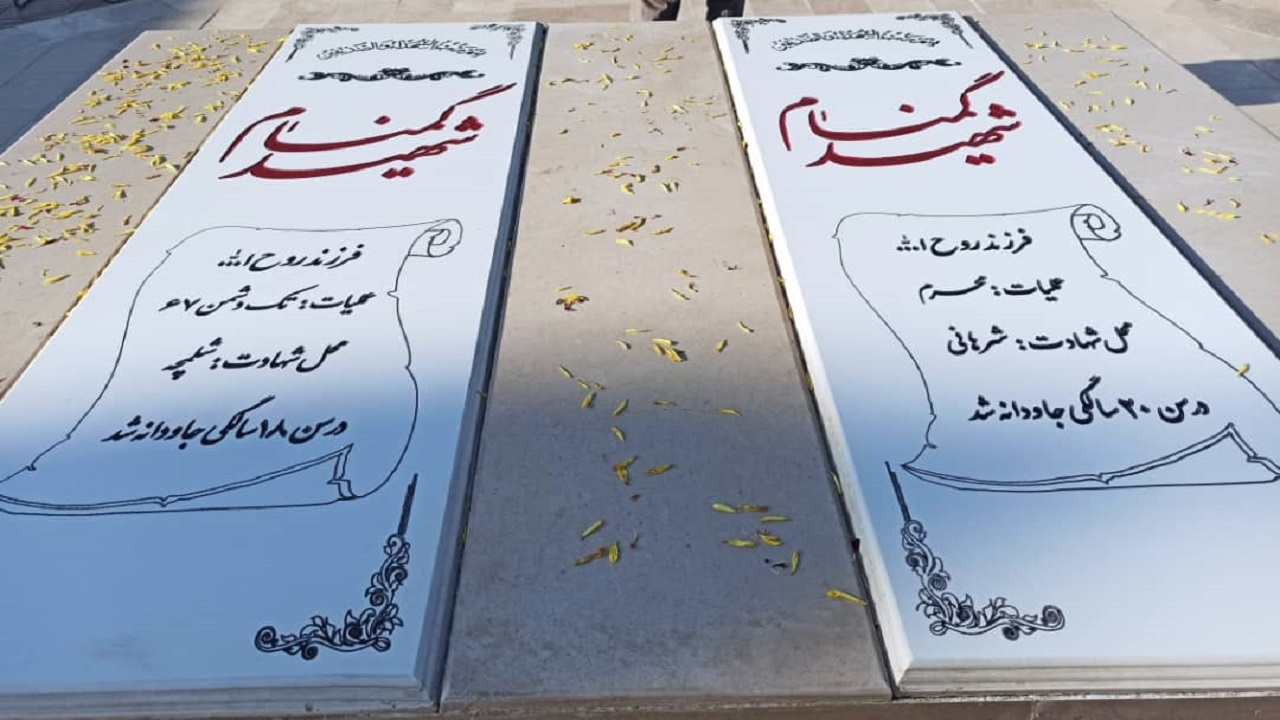 شهید گمنام
فرزند روح الله
عملیات: محرم
محل شهادت: شرهانی
در سن ۲۰ سالگی جاودانه شد
شهید گمنام
فرزند روح الله
عملیات: تک دشمن ۶۷
محل شهادت: شلمچه
در سن ۱۸ سالگی جاودانه شد